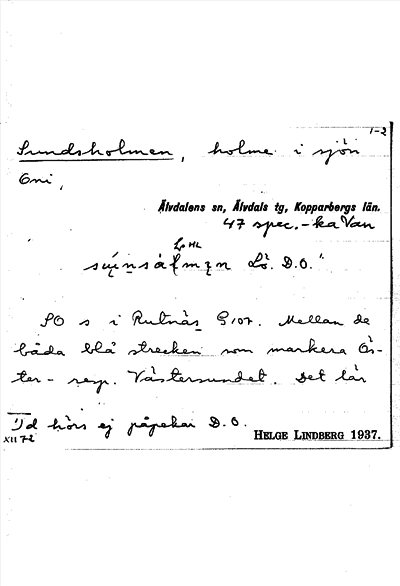 1-2
Sundsholmen, holme i sjön
Oni,
Älvdalens sn, Älvdals tg, Kopparbergs län.
47 spec.-ka Van
Lo HL
Lo. D.O.
SO s i Rutnäs G107. Mellan de
båda blå strecken som markera Ös-
ter- resp. Västersundet. Det lär
Id hörs ej påpekar D.O.
XII 72
HELGE LINDBERG 1937.